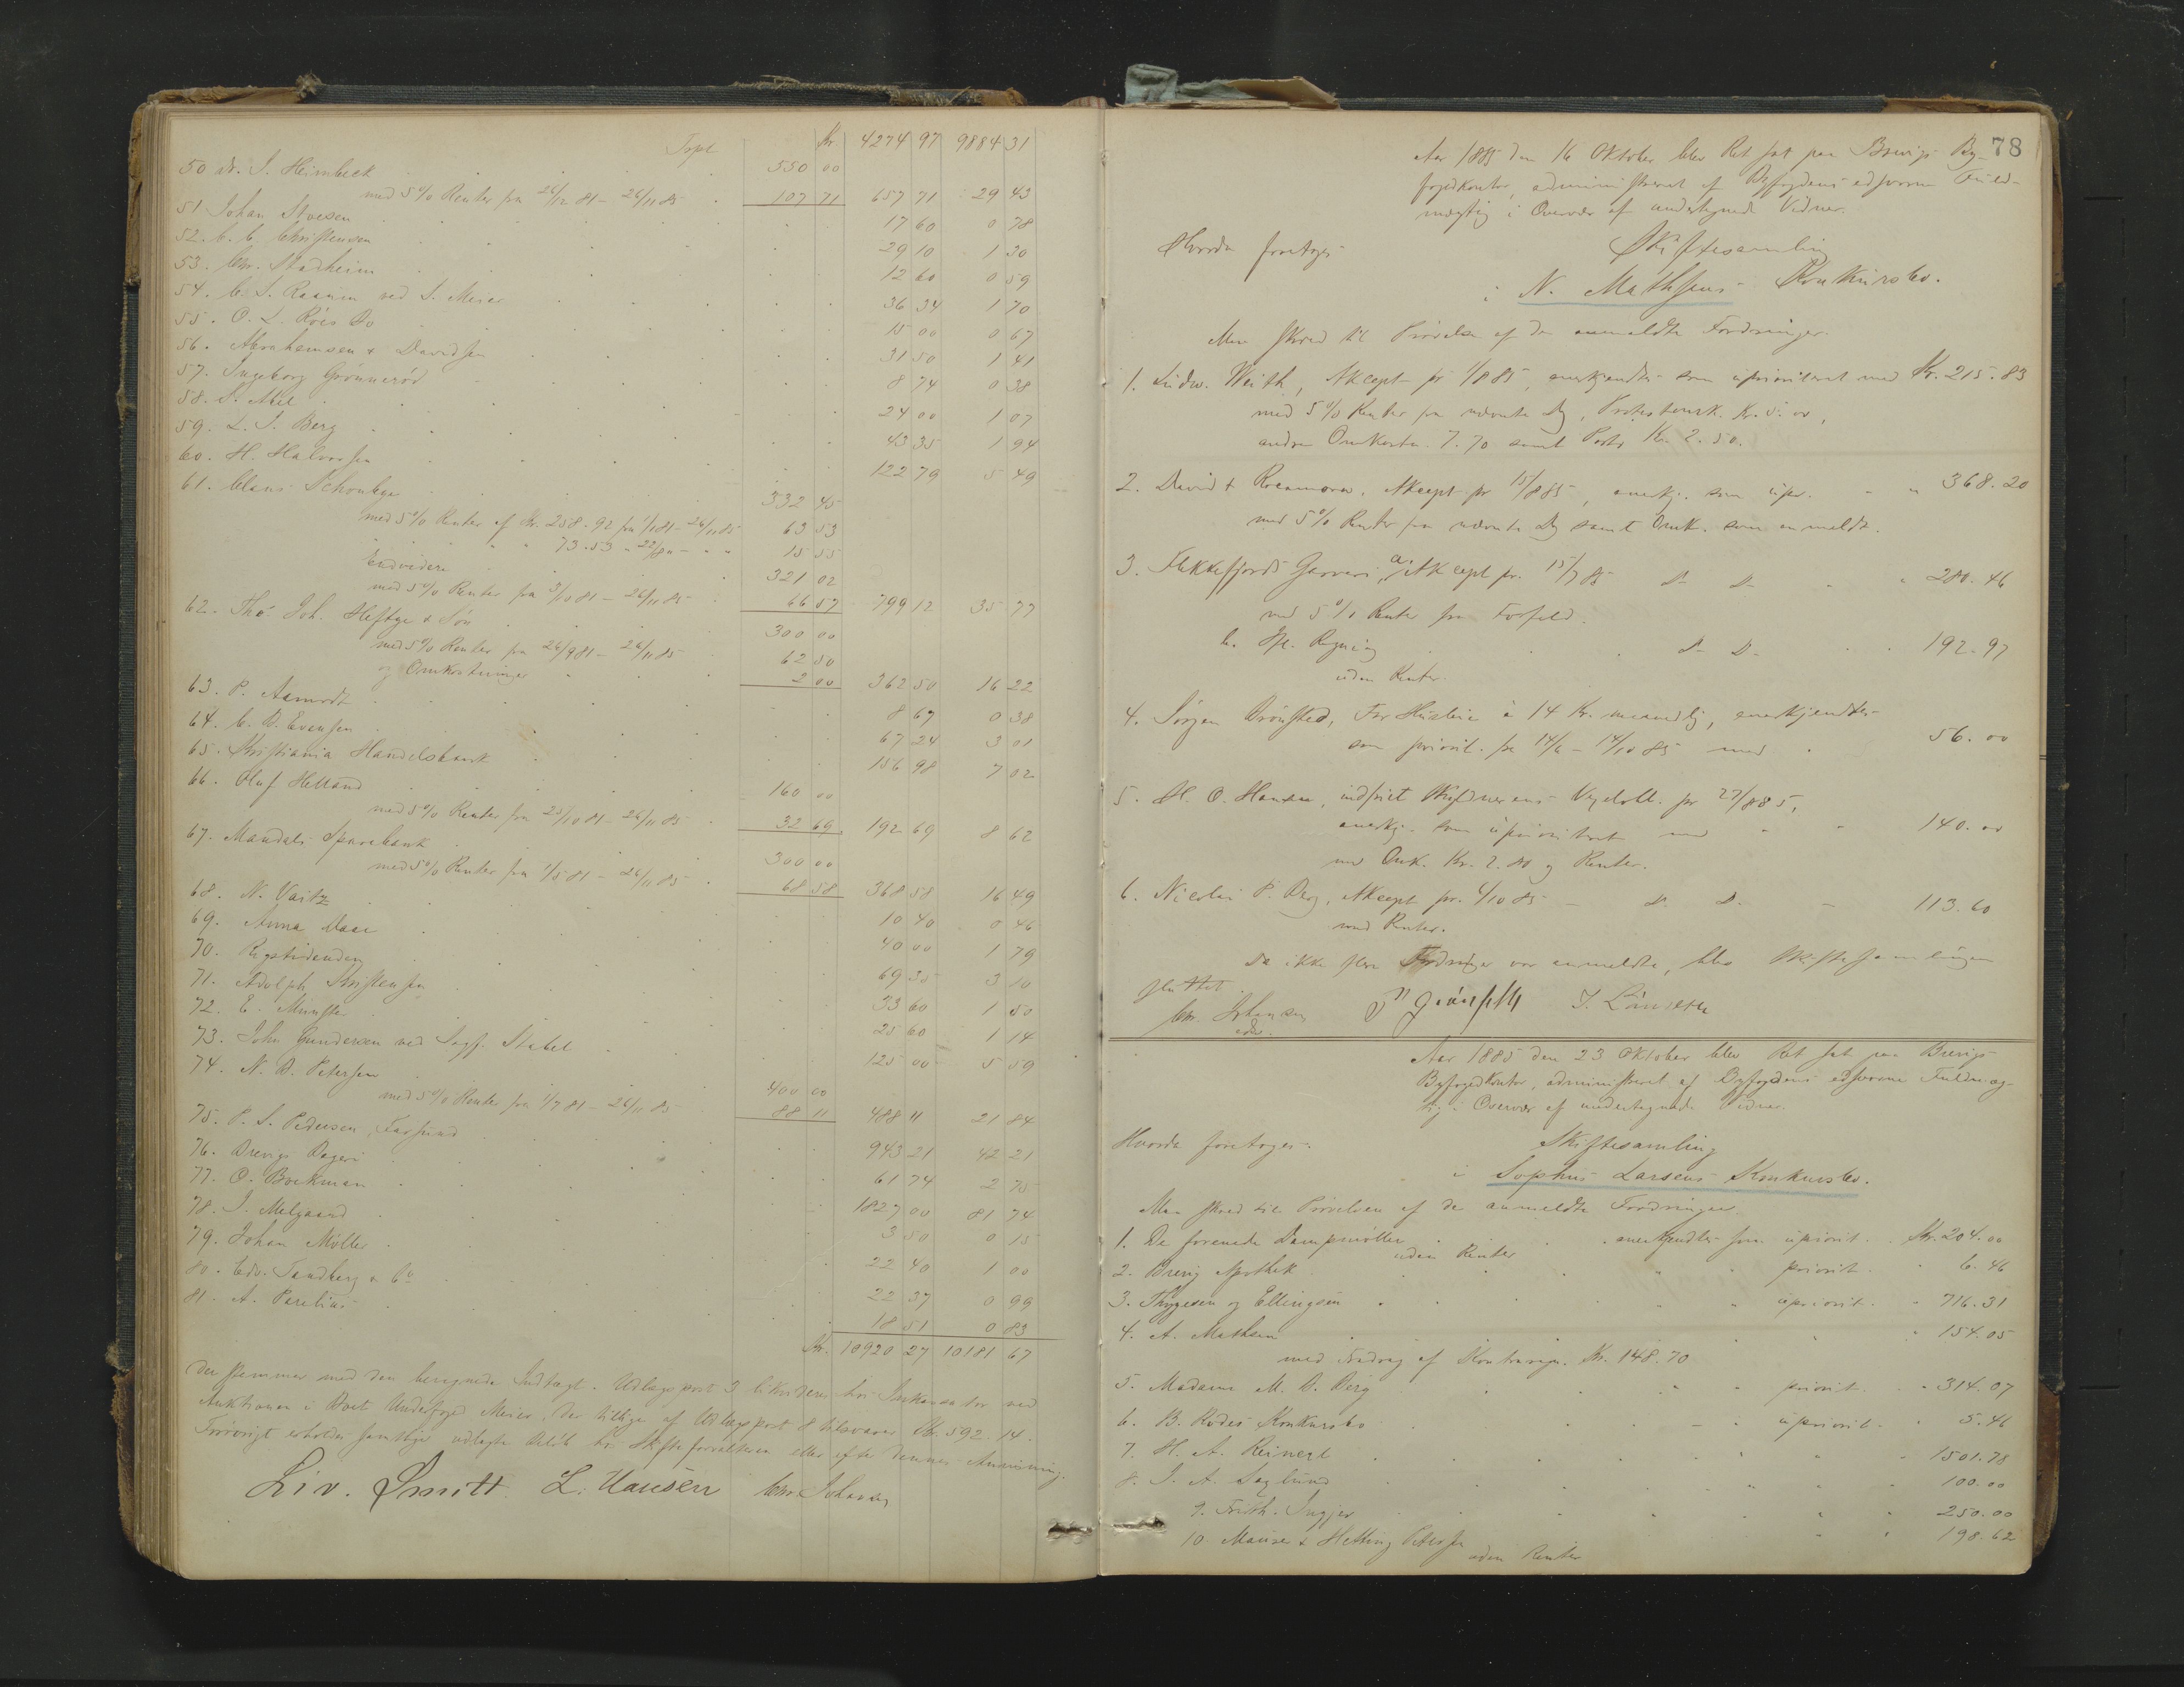 Tspt Kr. 4274 97 9884 31
50 Dr. J. Heimbeck . . . 550 00
med 5% Renter fra 26/12 81 – 26/11 85 . 107 71 657 71 29 43
51 Johan Stoesen . . . 17 60 0 78
52. C. C. Christensen . . . 29 10 1 30
53. Chr. Stadheim . . . 12 60 0 59
54. C. S. Raanen ved S. Meier . . . 36 34 1 70
55. O. L. Röes Bo . . . 15 00 0 67
56. Abrahamsen & Davidsen . . . 31 50 1 41
57. Ingeborg Grönnerød . . . 8 74 0 38
58. S. Abel . . . 24 00 1 07
59. L. J. Berg . . . 43 35 1 94
60. H. Halvorsen . . . 122 79 5 49
61. Claus Schonhye . . . 332 45
med 5% Renter af Kr. 258.92 fra 1/1 81 – 26/11 85 63 53
" " " " 73.53 " 22/8 " – " " 15 55
Endvidere . . . 321 02
med 5% Renter fra 3/10 81 – 26/11 85 . 66 57 799 12 35 77
62. Ths. Joh. Heftye & Søn . . . 300 00
med 5% Renter fra 26/9 81 – 26/11 85 . 62 50
og Omkostninger . . . 2 00 362 50 16 22
63. P. Aamodt . . . 8 67 0 38
64. C. B. Evensen . . . 67 24 3 01
65. Kristiania Handelsbank . . . 156 98 7 02
66. Oluf Helland . . . 160 00
med 5% Renter fra 25/10 81 – 26/11 85 . 32 69 192 69 8 62
67. Mandals Sparebank . . . 300 00
med 5% Renter fra 1/5 81 – 26/11 85 . 68 58 368 58 16 49
68. N. Vaitz . . . 10 40 0 46
69. Anna Daae . . . 40 00 1 79
70. Rigstidenden . . . 69 35 3 10
71. Adolph Kristensen . . . 33 60 1 50
72. E. Münster . . . 25 60 1 14
73. John Gundersen ved Sagf. Stabel . . . 125 00 5 59
74. N. B. Petersen . . . 400 00
med 5% Renter fra 1/7 81 – 26/11 85 . 88 11 488 11 21 84
75. P. S. Pedersen, Farsund . . . 943 21 42 21
76. Brevigs Bageri . . . 61 74 2 75
77. O. Böckman . . . 1827 00 81 74
78. J. Melgaard . . . 3 50 0 15
79. Johan Møller . . . 22 40 1 00
80. Edv. Sandberg & Co. . . . 22 37 0 99
81. A. Parelius . . . 18 51 0 83
Kr. 10920 27 10181 67
der stemmer med den beregnede Indtægt. Udlægspost 3 likviderer hos Inkassator ved
Auktionen i Boet Underfoged Meier, der tillige af Udlægspost 8 tilsvarer Kr. 592.14.
Forøvrigt erholdes samtlige udlagte Beløb hos Skifteforvalteren eller efter dennes Anvisning.
Liv. Smitt. L. Hansen Chr. Johansen
78
Aar 1885 den 16 Oktober blev Ret sat paa Brevigs By-
fogedkontor, administreret af Byfogdens edsvorne Fuld-
mægtig i Overvær af undertegnede Vidner.
Hvorda foretoges Skiftesamling
i N. Mathsens Konkursbo.
Man skred til Prøvelse af de anmeldte Fordringer.
1. Ludw. Wuith, Akcept pr 1/8 85, anerkjendtes som uprioriteret med Kr. 215.83
med 5% Renter fra nævnte Dg, Protestomk. Kr. 5.00,
andre Omkostn. 7.70 samt Porto Kr. 2.50.
2. David & Rocamora, Akcept pr 15/8 85, anerkj. som upr. " " 368.20
med 5% Renter fra nævnte Dg samt Omk. som anmeldt.
3. Flekkefjords Garveri, a/ Akcept pr. 15/7 85 D– D– " " 280.46
med 5% Renter fra Forfald.
b. Ifl. Regning . . D– D– . . 192.97
uden Renter.
4. Jörgen Brönsted, For Husleie à 14 Kr. maanedlig, anerkjendtes
som priorit. fra 14/6 – 14/10 85 med . 56.00
5. H. O. Hansen, indfriet Skyldnerens Vexelobl. pr 27/8 85,
anerkj. som uprioriteret med " " 140.00
med Omk. Kr. 2.80 og Renter.
6. Nicolai P. Berg, Akcept pr. 6/10 85 – D. D. – 113.60
med Renter.
Da ikke flere Fordringer var anmeldte, blev Skiftesamlingen
sluttet.
Chr. Johansen
edsv. J. Lönseth
Aar 1885 den 23 Oktober blev Ret sat paa Brevigs
Byfogedkontor, administreret af Byfogdens edsvorne Fuldmæg-
tig i Overvær af undertegnede Vidner.
Hvorda foretoges: Skiftesamling
i Sophus Larsens Konkursbo.
Man skred til Prövelsen af de anmeldte Fordringer.
1. De forenede Dampmöller . . . anerkjendtes som upriorit. . Kr. 204.00
uden Renter
2. Brevig Apothek . . " " priorit. " 6.46
3. Thygesen og Ellingsen . . " " upriorit. . " 716.31
4. A. Mathsen . . . " " 154.05
med Fradrag af Kontraregn. Kr. 148.70
5. Madame M. B. Berg . . " " priorit. . " 314.07
6. B. Rödes Konkursbo . . – " upriorit. " 5.46
7. H. A. Reinert . . . " " 1501.78
8. J. A. Seglund . . " " " 100.00
9. Frith. Ingjer . . . " " 250.00
10 Mauser & Hetting Petersen . " " 198.62
uden Renter